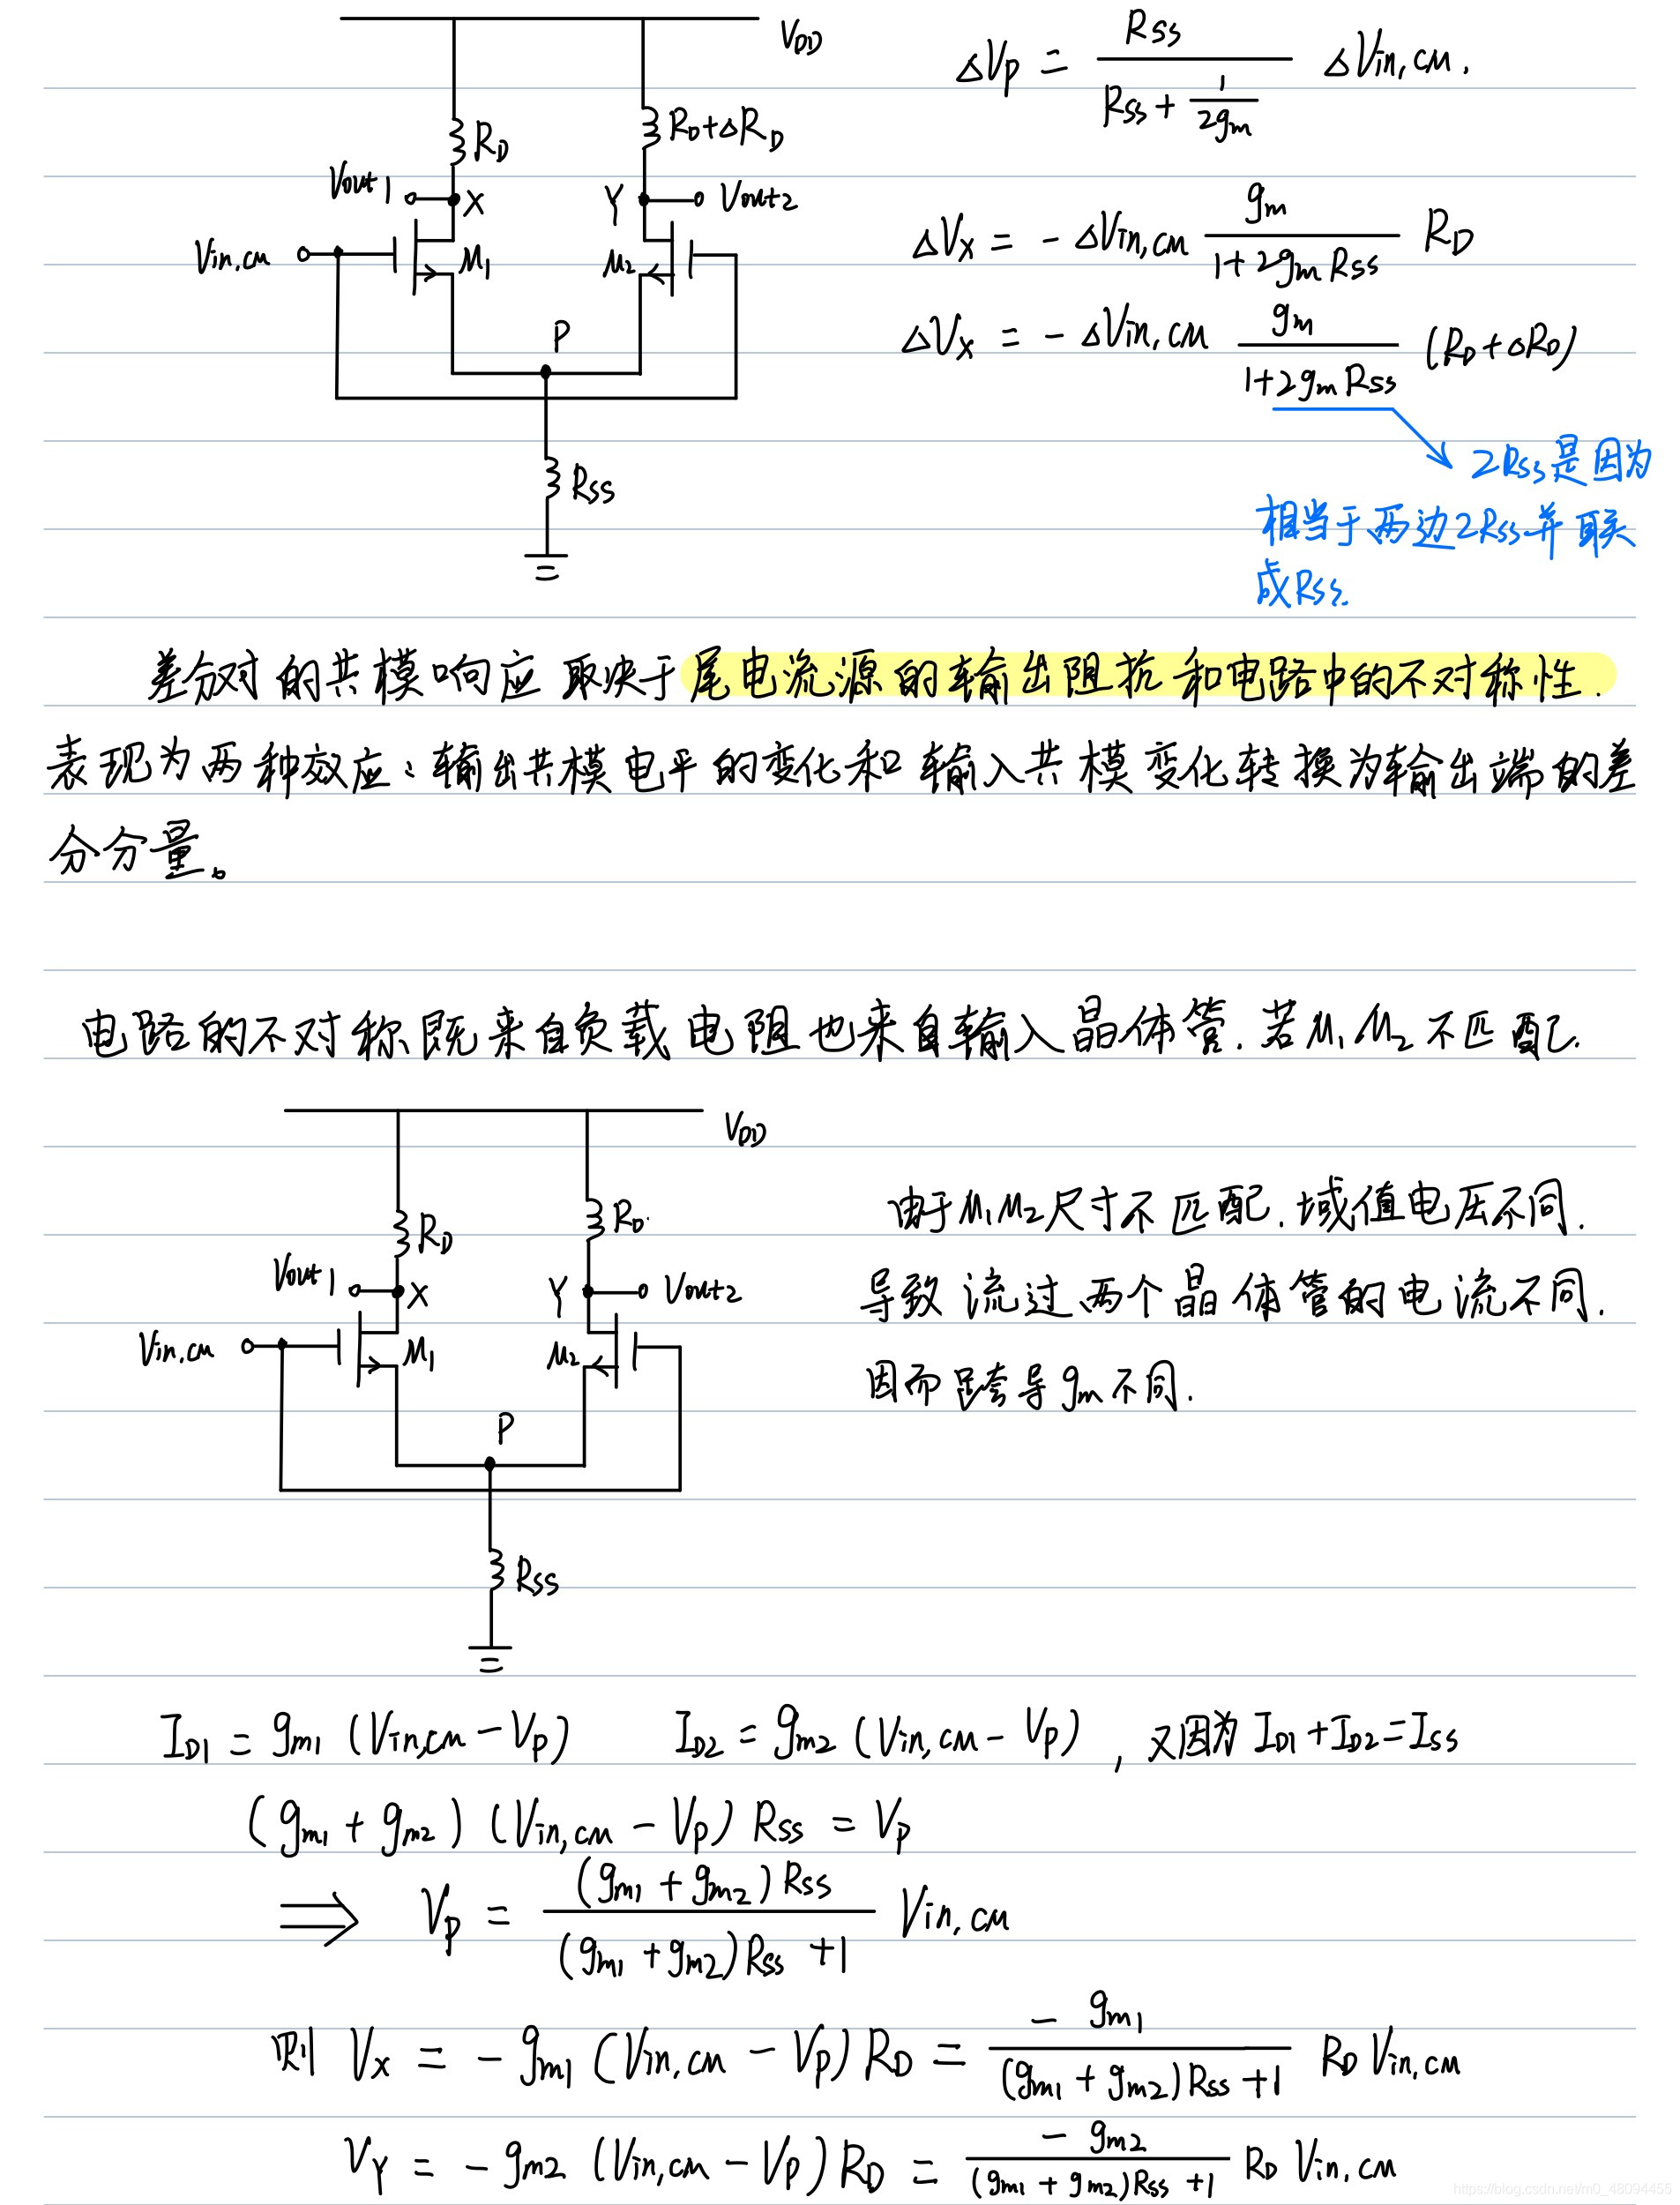 V_DD
ΔV_P = R_SS / (R_SS + 1/(2g_m)) ΔV_in,CM.
R_D
R_D+ΔR_D
V_out1
X
Y
V_out2
V_in,CM
M_1
M_2
P
R_SS
ΔV_X = - ΔV_in,CM g_m / (1+2g_m R_SS) R_D
ΔV_X = - ΔV_in,CM g_m / (1+2g_m R_SS) (R_D+ΔR_D)
2R_SS是因为
相当于两边2R_SS并联
成R_SS.
差分对的共模响应取决于尾电流源的输出阻抗和电路中的不对称性.
表现为两种效应:输出共模电平的变化和输入共模变化转换为输出端的差
分分量。
电路的不对称既来自负载电阻也来自输入晶体管.若M_1 M_2不匹配.
V_DD
R_D
R_D.
V_out1
X
Y
V_out2
V_in,CM
M_1
M_2
P
R_SS
由于M_1 M_2尺寸不匹配.域值电压不同.
导致流过两个晶体管的电流不同.
因而跨导g_m不同.
I_D1 = g_m1 (V_in,CM - V_P) I_D2 = g_m2 (V_in,CM - V_P), 又因为 I_D1 + I_D2 = I_SS
(g_m1 + g_m2) (V_in,CM - V_P) R_SS = V_P
⇒ V_P = (g_m1 + g_m2) R_SS / ((g_m1 + g_m2) R_SS + 1) V_in,CM
则 V_X = - g_m1 (V_in,CM - V_P) R_D = - g_m1 / ((g_m1 + g_m2) R_SS + 1) R_D V_in,CM
V_Y = - g_m2 (V_in,CM - V_P) R_D = - g_m2 / ((g_m1 + g_m2) R_SS + 1) R_D V_in,CM
https://blog.csdn.net/m0_48094455